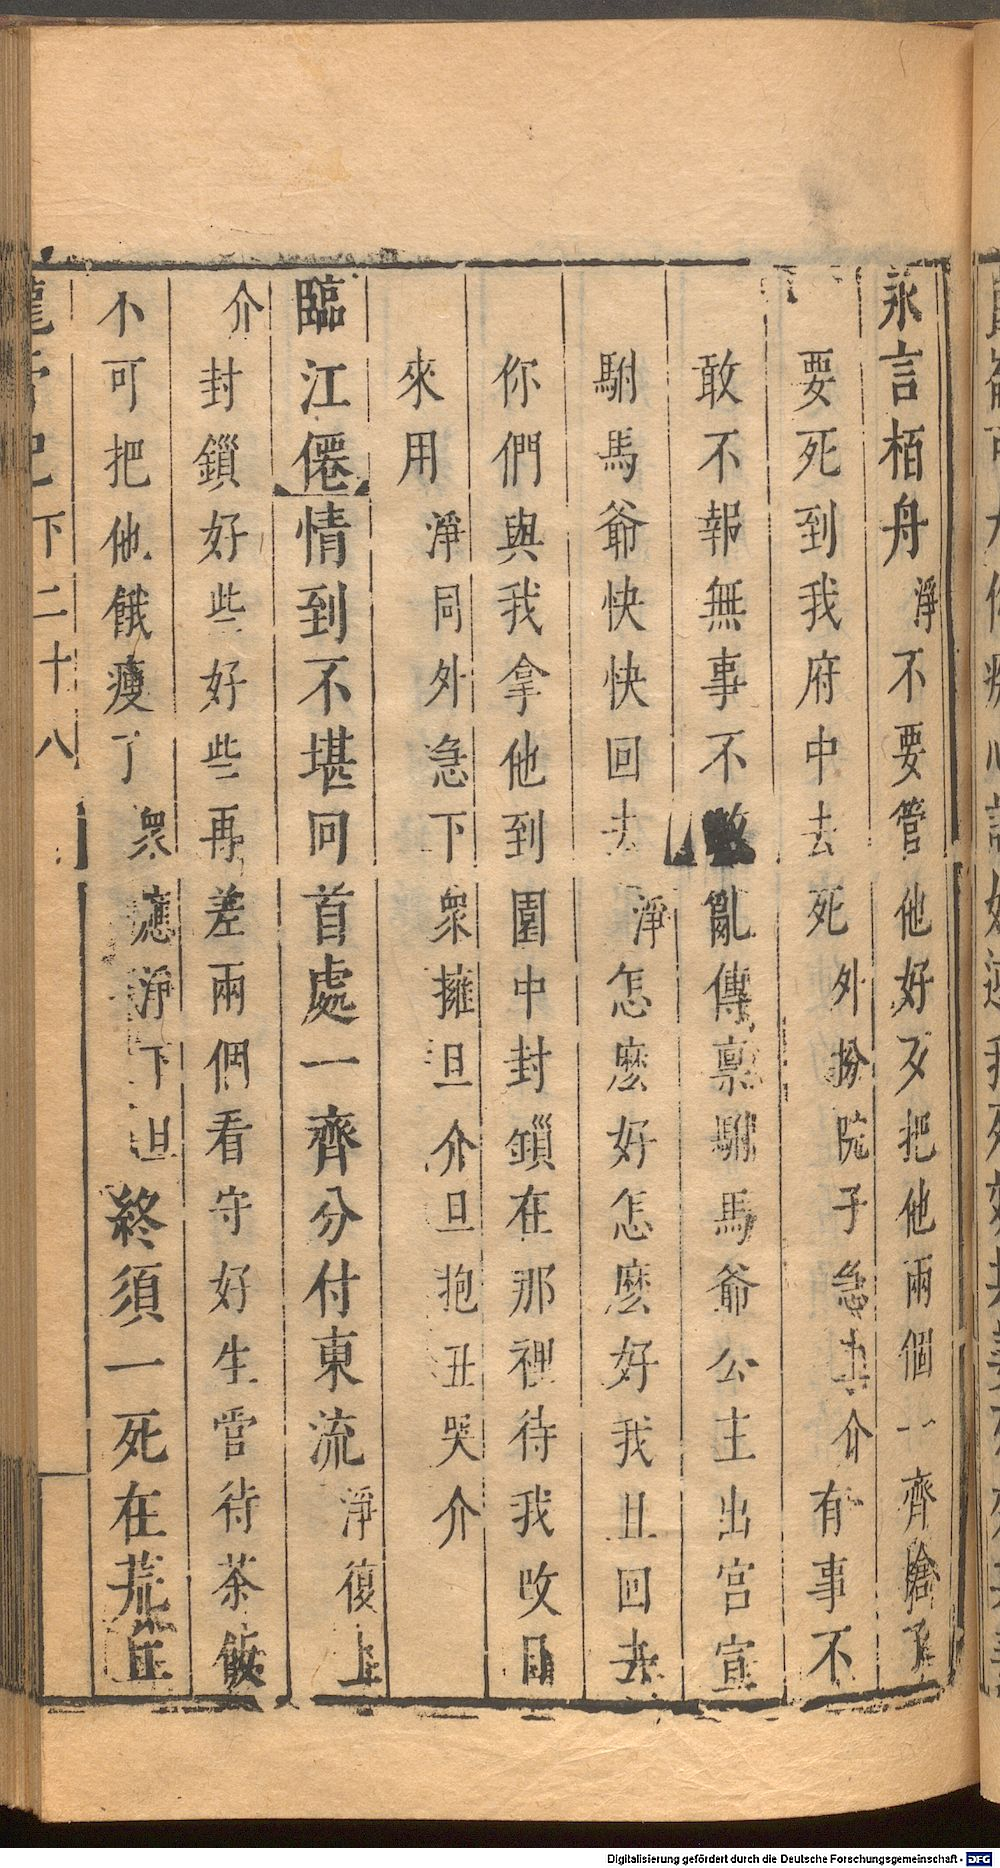 永言栢舟淨不要管他好歹把他兩個一齊臉了
要死到我府中去死外扮院子急上介有事不
敢不報無事不敢亂傳禀駙馬爺公主出宮宣
駙馬爺快快回去淨怎麽好怎麽好我且回去
你們與我拿他到園中封鎻在那裡待我改日
來用淨同外急下衆擁旦介旦抱丑哭介
臨江僊情到不堪囘首處一齊分付東流淨復上
介封鎻好些好些再差兩個看守好生嘗待茶飯
不可把他餓瘦了衆應淨下旦終須一死在荒丘
記下二十八
Digitalisierung gefördert durch die Deutsche Forschungsgemeinschaft - DFG